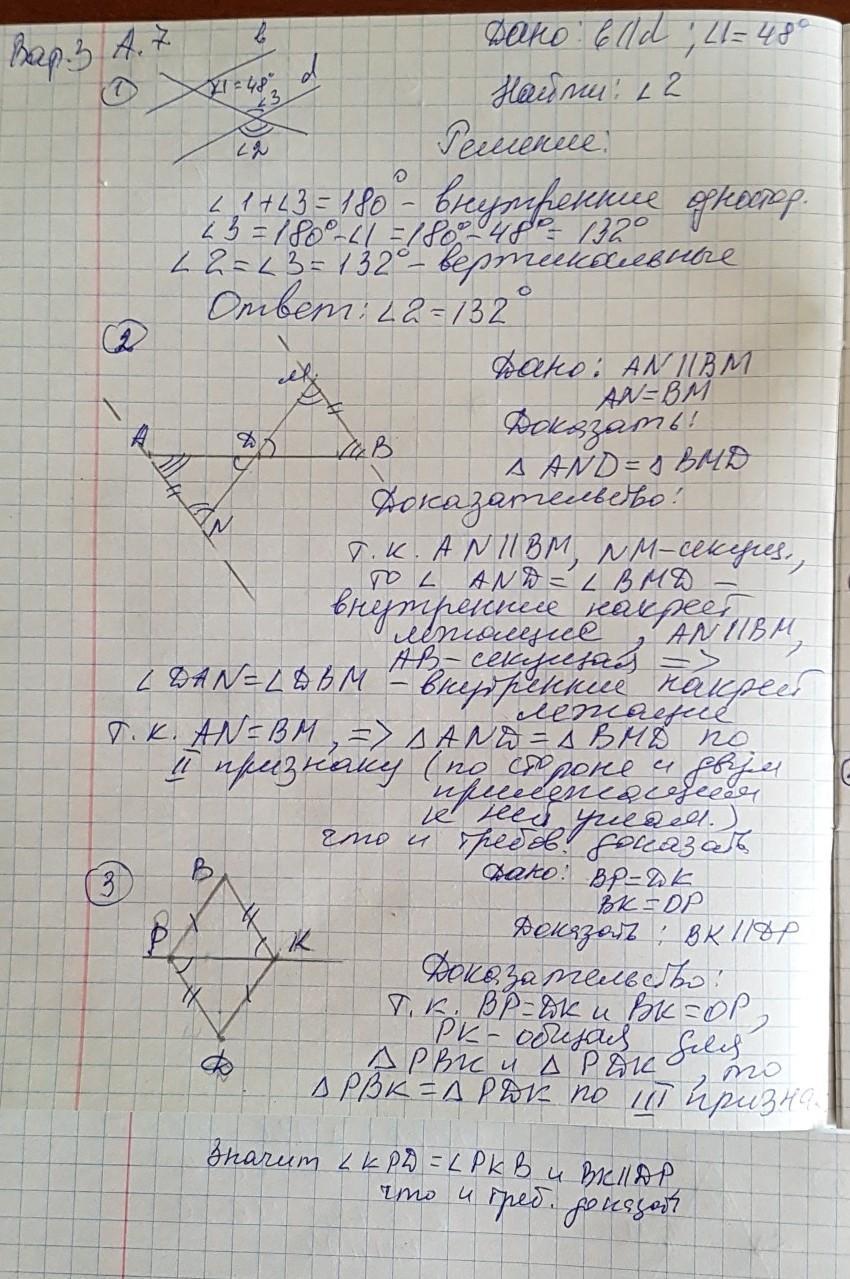 Вар.3 А.7
Дано: b||d; ∠1=48°
① b d ∠1=48° ∠3 ∠2
Найти: ∠2
Решение:
∠1+∠3=180° - внутренние одностор.
∠3=180°-∠1=180°-48°=132°
∠2=∠3=132° - вертикальные
Ответ: ∠2=132°
②
М А D В N
Дано: AN||BM
AN=BM
Доказать:
△AND=△BMD
Доказательство:
т.к. AN||BM, NM-секущ.,
то ∠AND=∠BMD -
внутренние накрест
лежащие, AN||BM,
AB-секущая =>
∠DAN=∠DBM - внутренние накрест
лежащие
т.к. AN=BM, => △AND=△BMD по
II признаку (по стороне и двум
прилежащим
к ней углам.)
что и требов. доказать
③
В Р К D
Дано: BP=DK
BK=DP
Доказать: BK||DP
Доказательство:
т.к. BP=DK и BK=DP,
PK-общая для
△PBK и △PDK, то
△PBK=△PDK по III призна
Значит ∠KPD=∠PKB и BK||DP
что и треб. доказать